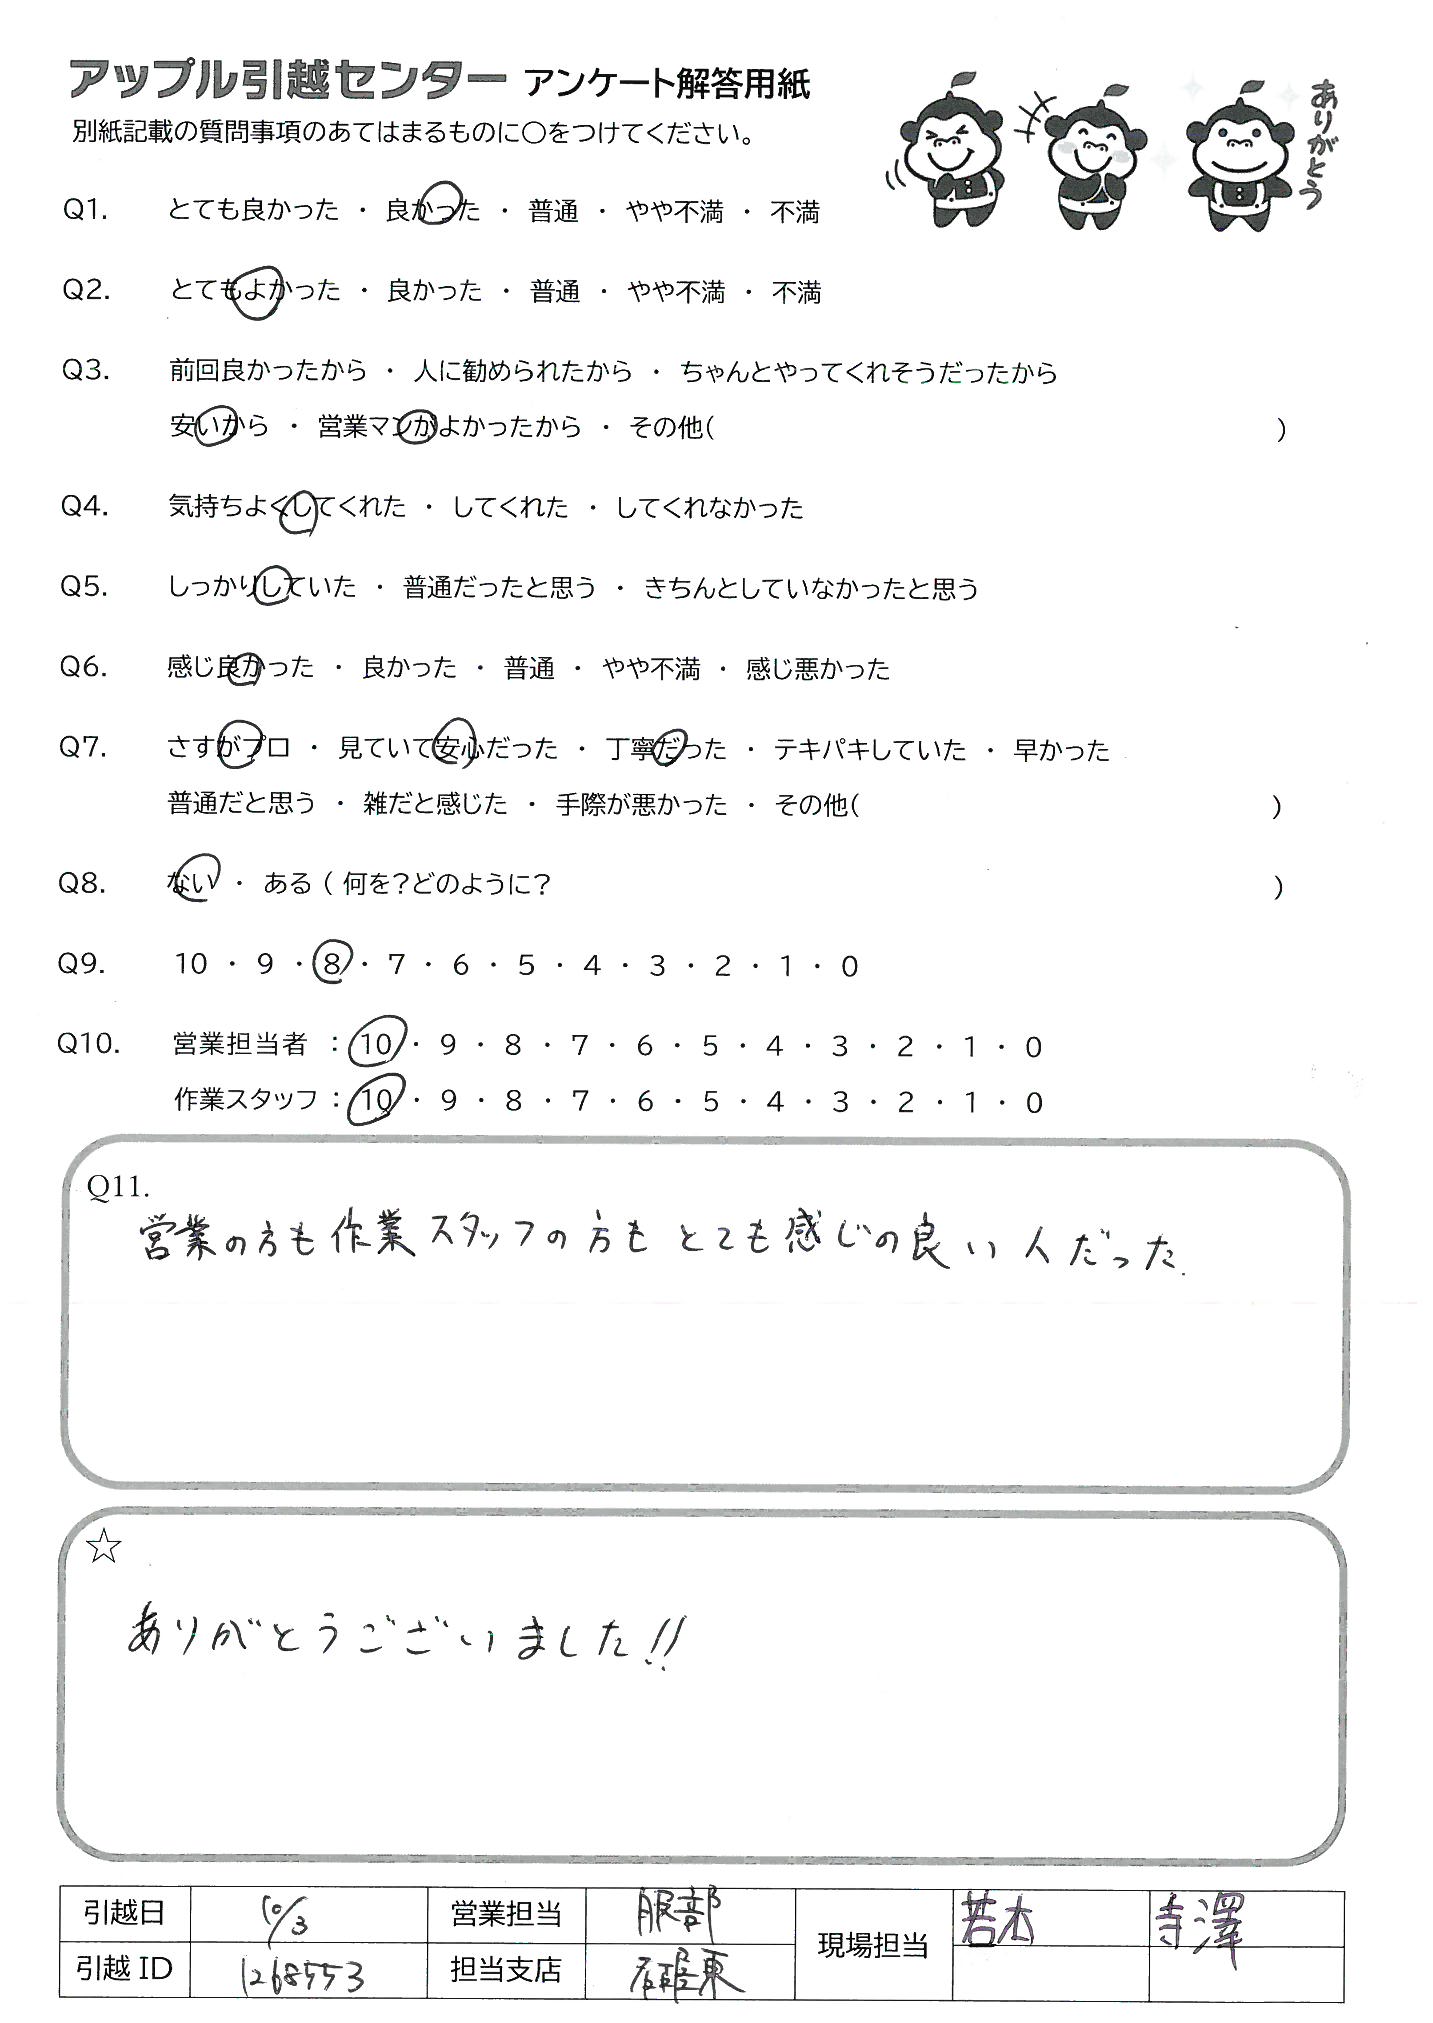 アップル引越センター アンケート解答用紙
ありがとう
別紙記載の質問事項のあてはまるものに○をつけてください。
Q1. とても良かった ・ 良かった ・ 普通 ・ やや不満 ・ 不満
Q2. とてもよかった ・ 良かった ・ 普通 ・ やや不満 ・ 不満
Q3. 前回良かったから ・ 人に勧められたから ・ ちゃんとやってくれそうだったから
安いから ・ 営業マンがよかったから ・ その他( )
Q4. 気持ちよくしてくれた ・ してくれた ・ してくれなかった
Q5. しっかりしていた ・ 普通だったと思う ・ きちんとしていなかったと思う
Q6. 感じ良かった ・ 良かった ・ 普通 ・ やや不満 ・ 感じ悪かった
Q7. さすがプロ ・ 見ていて安心だった ・ 丁寧だった ・ テキパキしていた ・ 早かった
普通だと思う ・ 雑だと感じた ・ 手際が悪かった ・ その他( )
Q8. ない ・ ある ( 何を?どのように? )
Q9. 10 ・ 9 ・ 8 ・ 7 ・ 6 ・ 5 ・ 4 ・ 3 ・ 2 ・ 1 ・ 0
Q10. 営業担当者 : 10 ・ 9 ・ 8 ・ 7 ・ 6 ・ 5 ・ 4 ・ 3 ・ 2 ・ 1 ・ 0
作業スタッフ : 10 ・ 9 ・ 8 ・ 7 ・ 6 ・ 5 ・ 4 ・ 3 ・ 2 ・ 1 ・ 0
Q11.
営業の方も作業スタッフの方もとても感じの良い人だった.
☆
ありがとうございました!!
引越日 10/3 営業担当 服部 現場担当 若木 寺澤
引越 ID 1268553 担当支店